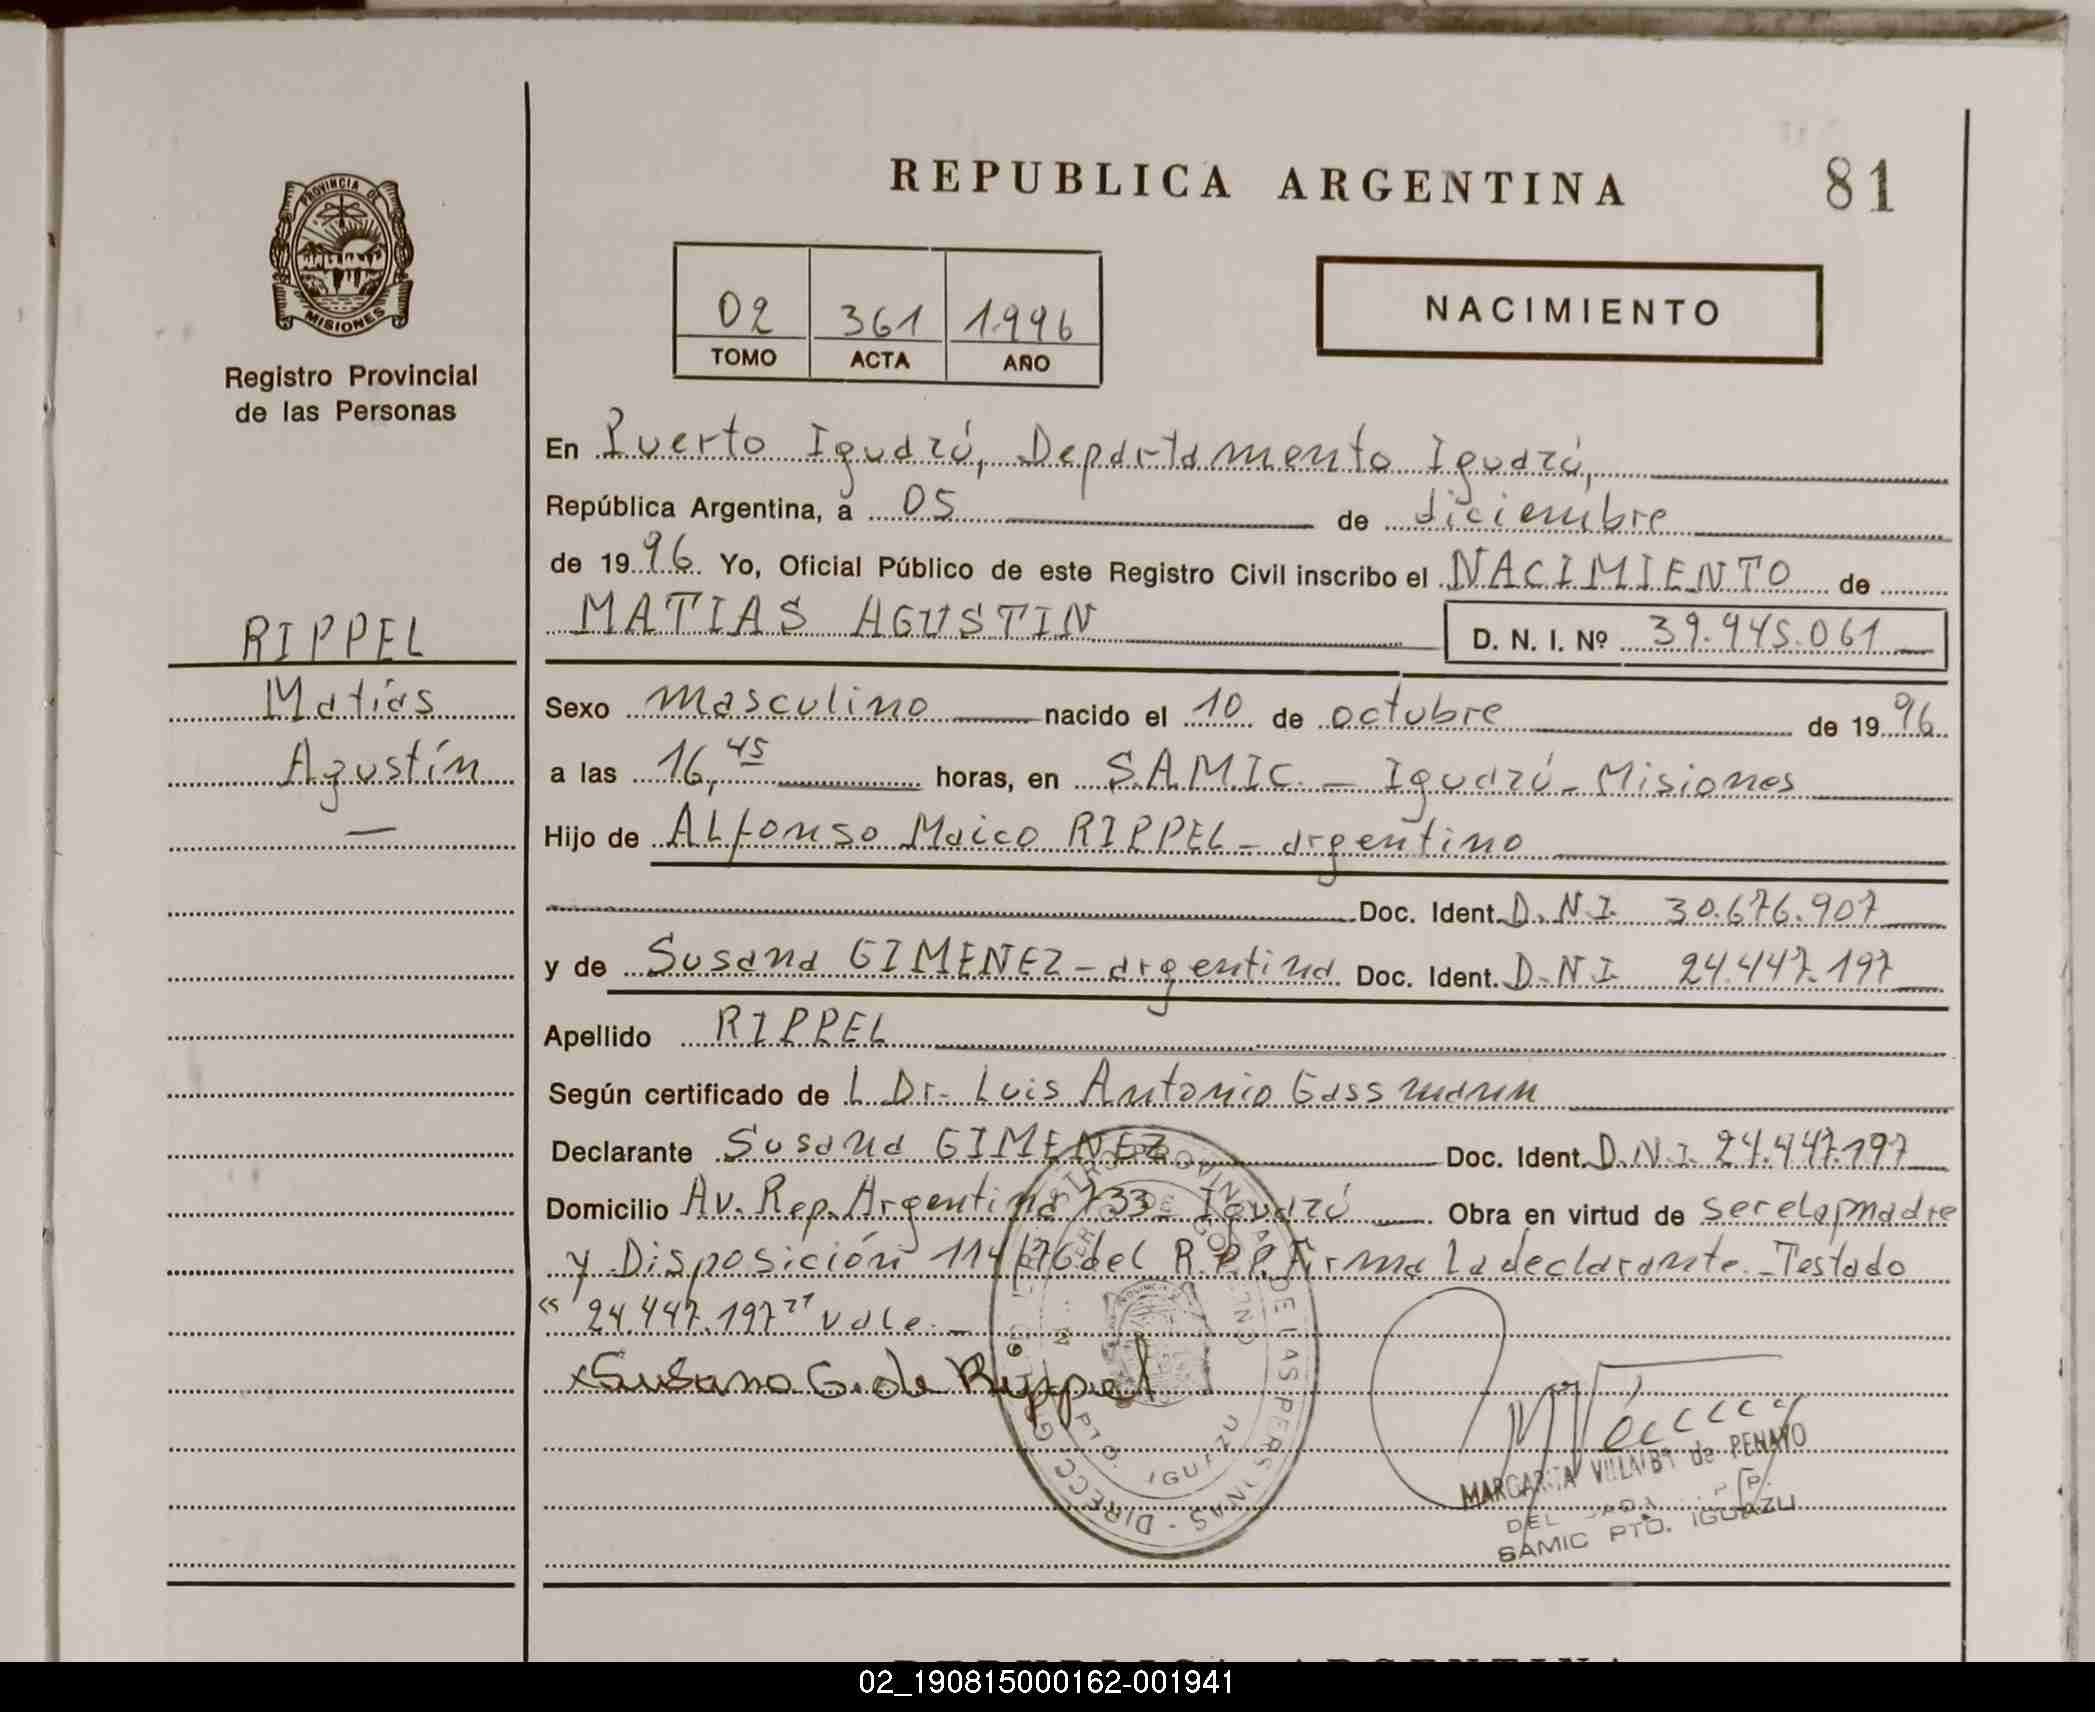 REPUBLICA ARGENTINA
81
PROVINCIA DE
MISIONES
Registro Provincial
de las Personas
02 361 1996
TOMO ACTA AÑO
NACIMIENTO
En Puerto Iguazú, Departamento Iguazú,
República Argentina, a 05 de diciembre
de 1996 Yo, Oficial Público de este Registro Civil inscribo el NACIMIENTO de
MATIAS AGUSTIN D. N. I. Nº 39.945.061
RIPPEL
Matías
Agustín
Sexo masculino nacido el 10 de octubre de 1996
a las 16,45 horas, en S.A.M.I.C. - Iguazú - Misiones
Hijo de ALfonso Maico RIPPEL - argentino
Doc. Ident. D.N.I. 30.676.907
y de Susana GIMENEZ - argentina Doc. Ident. D.N.I. 24.447.197
Apellido RIPPEL
Según certificado de L Dr. Luis Antonio Gassmann
Declarante Susana GIMENEZ Doc. Ident. D.N.I. 24.447.197
Domicilio Av. Rep. Argentina 733 - Iguazú Obra en virtud de ser madre
y Disposición 114/76 del R.P.P. Firma La declarante. - Testado
"24.447.197" vale. -
xSusana G. de Rippel
PTO. IGUAZU
MARGARITA VILLALBA de PENAYO
DEL
SAMIC PTO. IGUAZU
REPUBLICA ARGENTINA
02_190815000162-001941